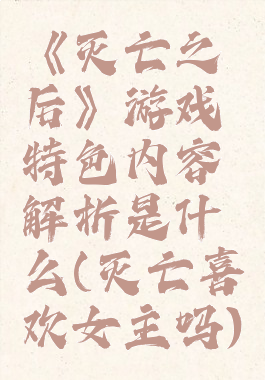 《灭亡之
后》游戏
特色内容
解析是什
么(灭亡喜
欢女主吗)